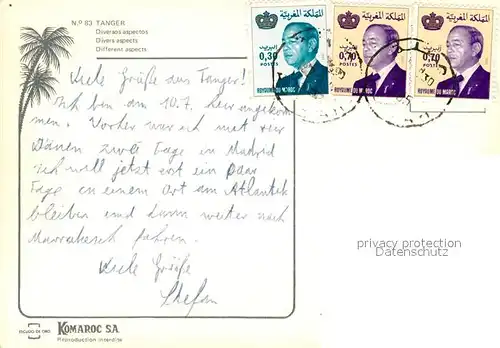 N.º 83 TANGER
Diversos aspectos
Divers aspects
Different aspects
Viele Grüße aus Tanger!
Ich bin am 10.7. hier angekom
men. Vorher war ich mit vier
Dänen zwei Tage in Madrid
Ich will jetzt erst ein paar
Tage an einem Ort am Atlantik
bleiben und dann weiter nach
Marrakesch fahren.
Viele Grüße
Stefan
المملكة المغربية
البريد
0,30
POSTES
ROYAUME DU MAROC
المملكة المغربية
البريد
0,70
POSTES
ROYAUME DU MAROC
المملكة المغربية
البريد
0,70
POSTES
ROYAUME DU MAROC
privacy protection
Datenschutz
ESCUDO DE ORO
KOMAROC S.A.
Reproduction interdite